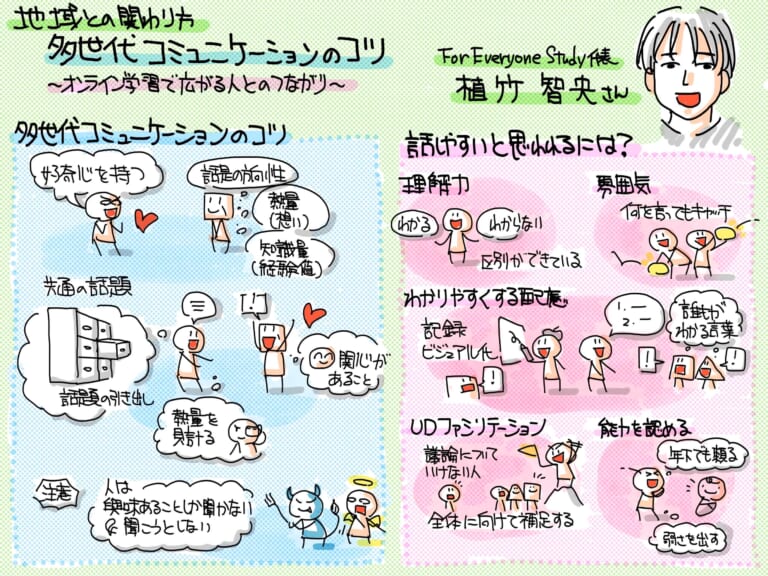 地域との関わり方
多世代コミュニケーションのコツ
～オンライン学習で広がる人とのつながり～
For Everyone Study代表
植竹 智央さん
多世代コミュニケーションのコツ
好奇心を持つ
話題の方向性
熱量
(想い)
知識量
(経験値)
共通の話題
話題の引き出し
[!]
関心が
あること
熱量を
見計る
注意
人は
興味あることしか聞かない
聞こうとしない
話しやすいと思われるには?
理解力
わかる
わからない
区別ができている
雰囲気
何を言ってもキャッチ
わかりやすくする配慮
記録
ビジュアル化
!
1.—
2.—
誰もが
わかる言葉
!
!
UDファシリテーション
議論について
いけない人
全体に向けて補足する
能力を認める
年下でも頼る
弱さを出す